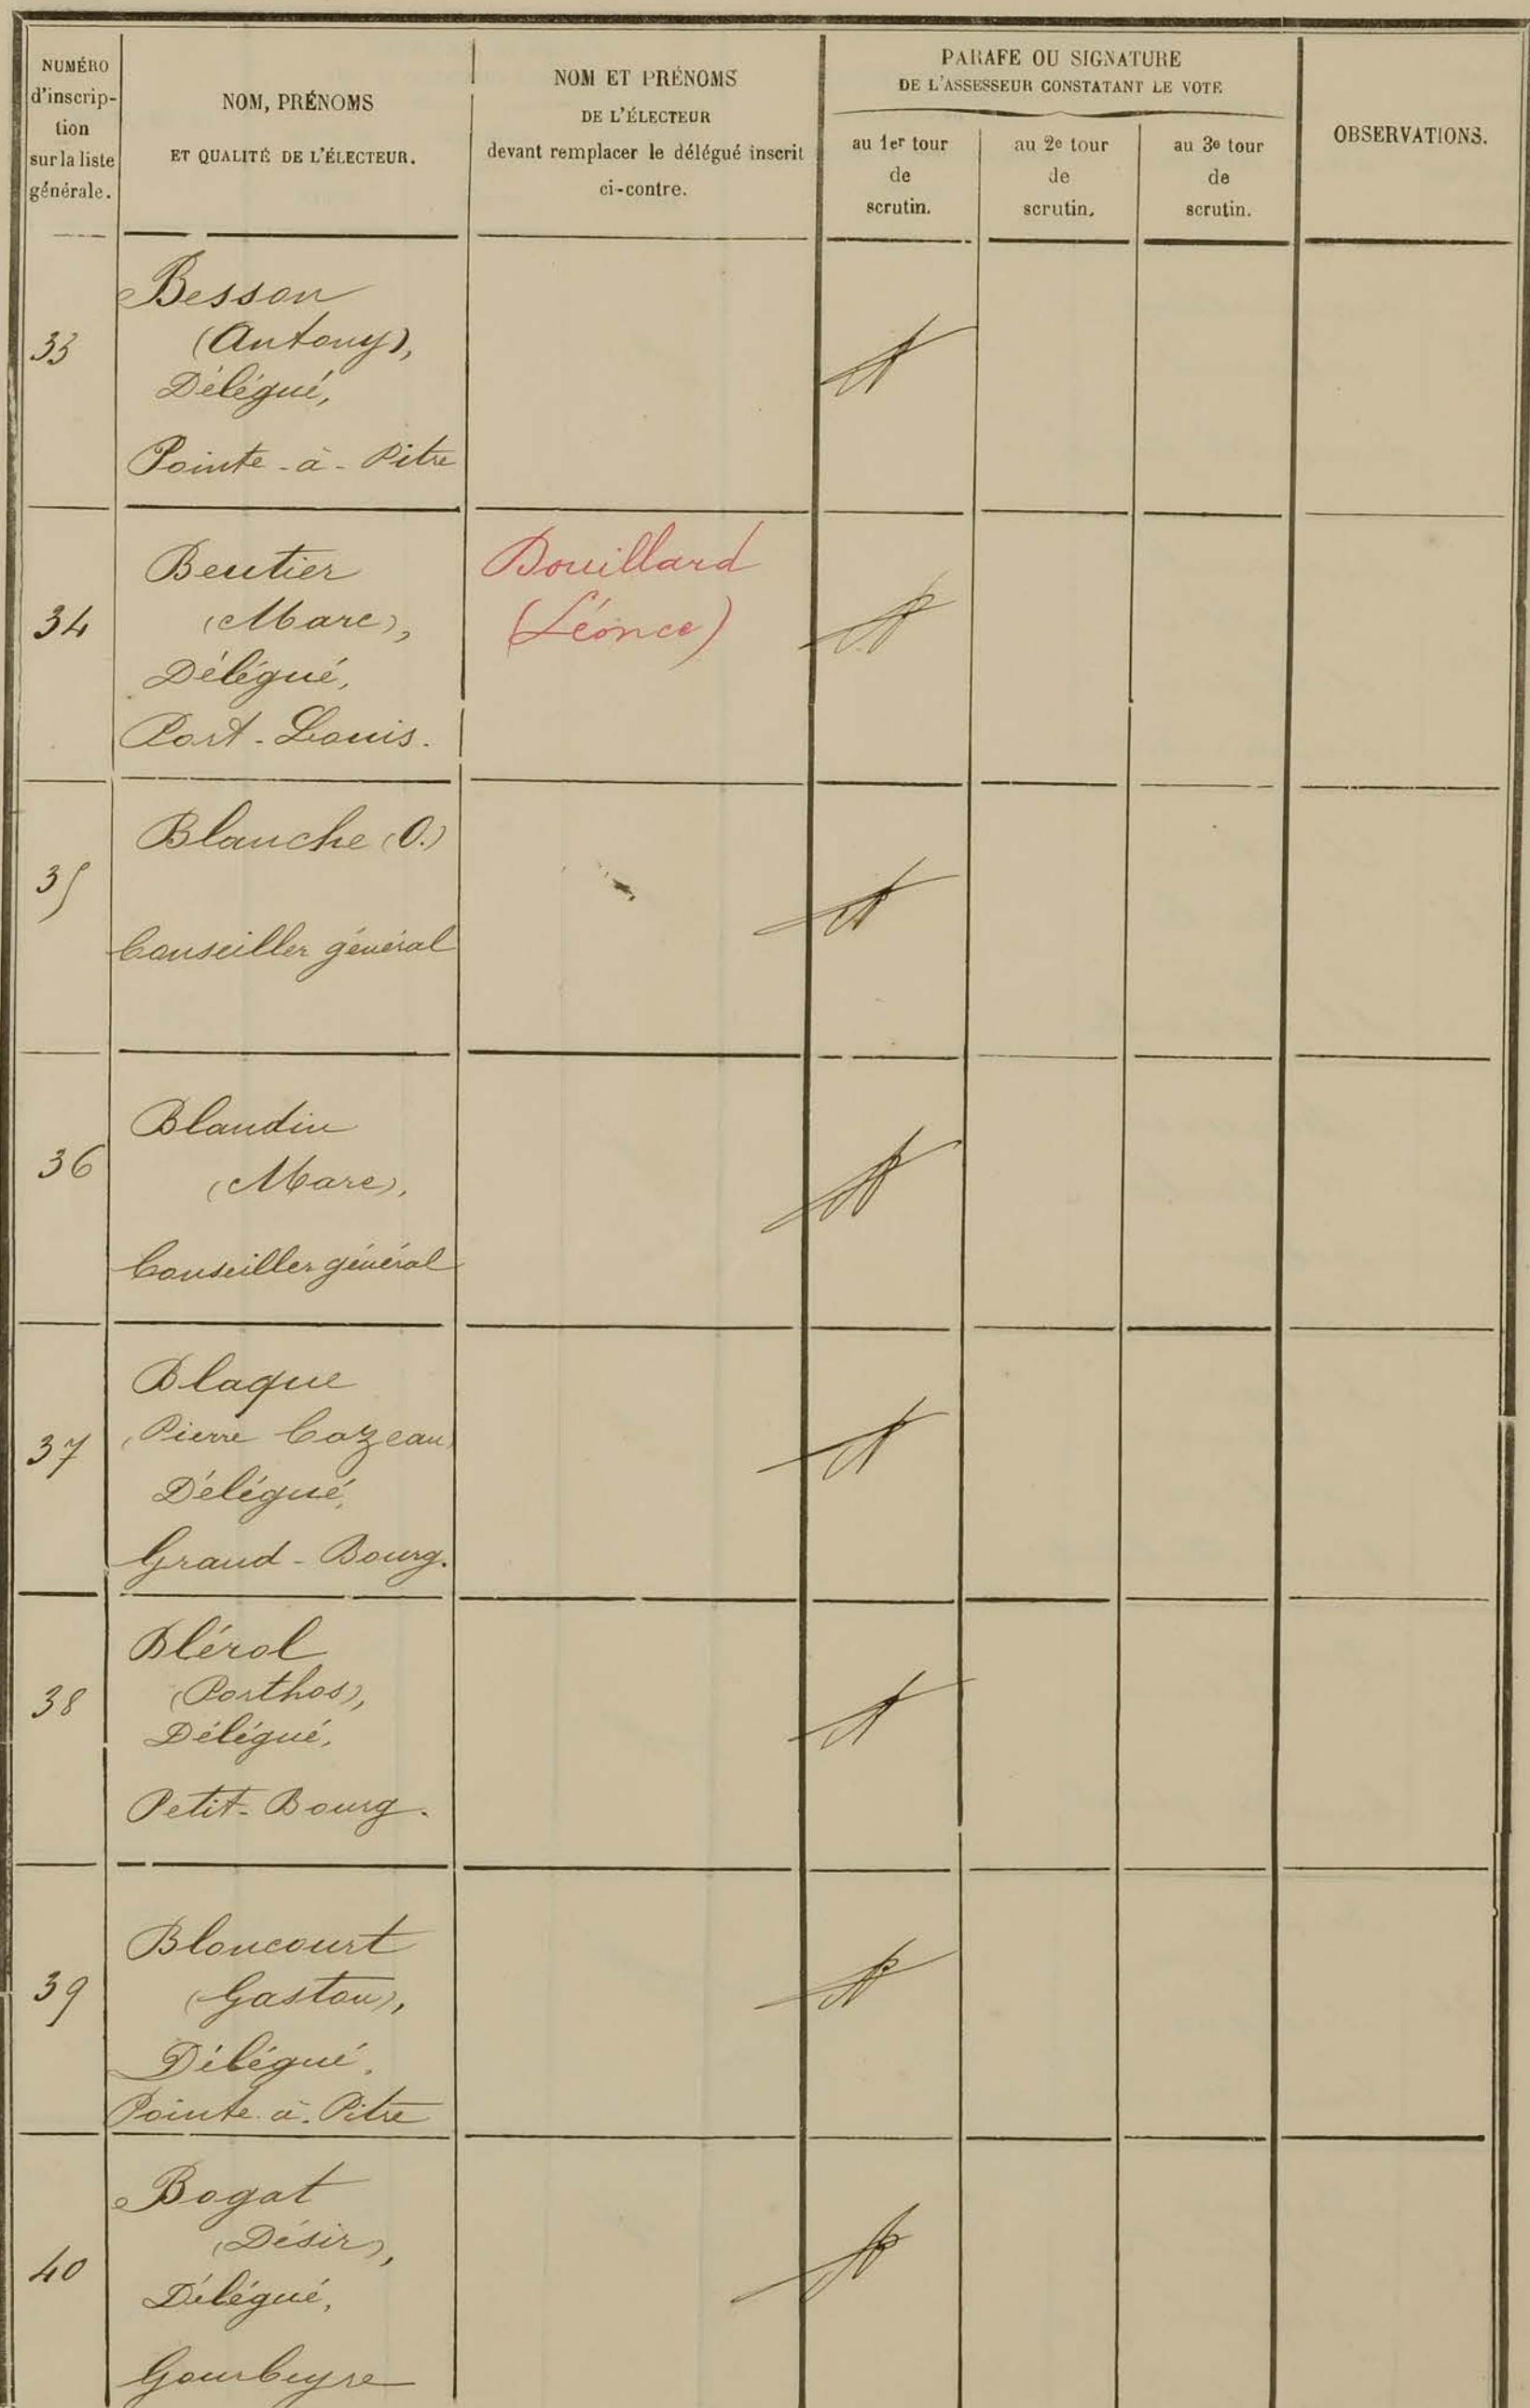 NUMÉRO
d'inscrip-
tion
sur la liste
générale.
NOM, PRÉNOMS
ET QUALITÉ DE L'ÉLECTEUR.
NOM ET PRÉNOMS
DE L'ÉLECTEUR
devant remplacer le délégué inscrit
ci-contre.
PARAFE OU SIGNATURE
DE L'ASSESSEUR CONSTATANT LE VOTE
au 1er tour
de
scrutin.
au 2e tour
de
scrutin.
au 3e tour
de
scrutin.
OBSERVATIONS.
33
Besson
(Antony),
Délégué,
Pointe-à-Pitre
34
Beutier
(Marc),
Délégué,
Port-Louis.
Bouillard
(Léonce)
35
Blanche (O.)
Conseiller général
36
Blandin
(Marc),
Conseiller général
37
Blaque
(Pierre Cazeau)
Délégué,
Grand-Bourg.
38
Blérol
(Porthos),
Délégué,
Petit-Bourg.
39
Bloncourt
(Gaston),
Délégué,
Pointe-à-Pitre
40
Bogat
(Désir),
Délégué,
Gourbeyre